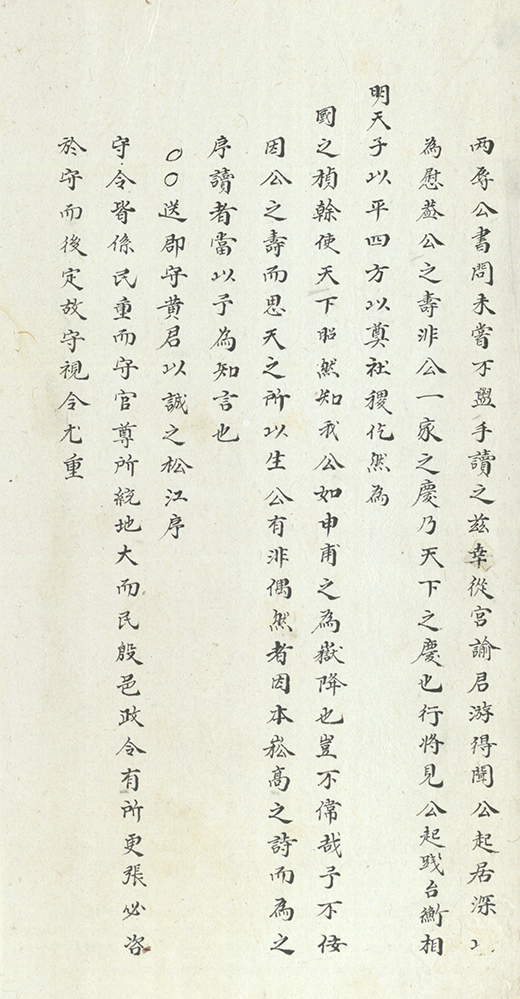 两辱公書問未嘗不盥手讀之兹幸從宫諭君游得聞公起居深以
為慰葢公之壽非公一家之慶乃天下之慶也行將見公起踐台衡相
明天子以平四方以奠社稷仡然為
國之楨榦使天下昭然知我公如申甫之為嶽降也豈不偉哉予不佞
因公之壽而思天之所以生公有非偶然者因本崧高之詩而為之
序讀者當以予為知言也
○○送郡守黄君以誠之松江序
守令皆係民重而守官尊所統地大而民殷邑政令有所更張必咨
於守而後定故守視令尤重